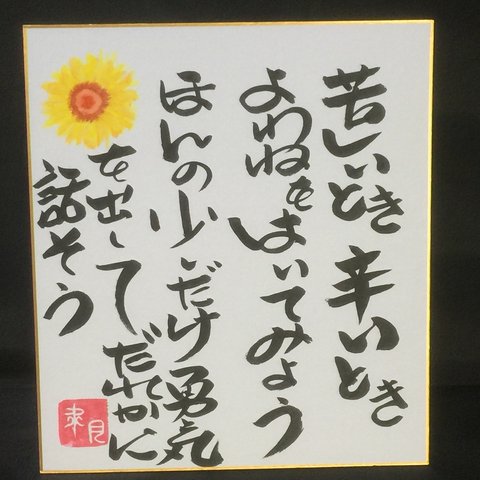 苦しいとき 辛いとき
よわねをはいてみよう
ほんの少しだけ勇気
を出して だれかに
話そう